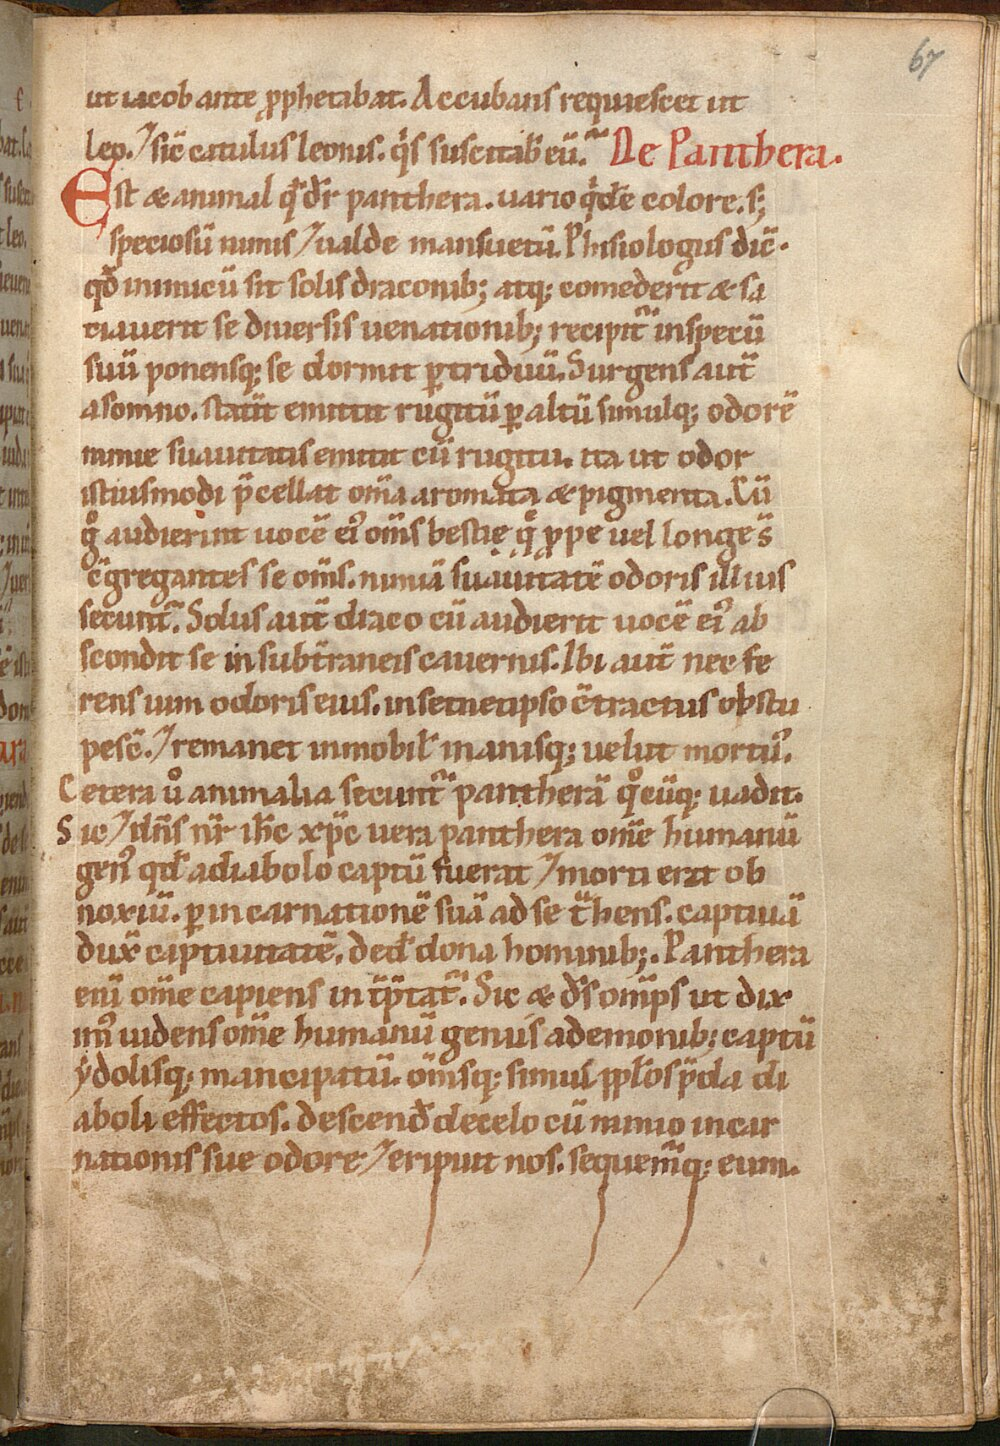 67
ut iacob ante ꝓphetabat. Accubans requiescet ut
leo. ⁊ sic̄ catulus leonis. qͥs suscitab̄ eū. De Panthera.
Est & animal qd̄ dr̄ panthera. uario qͥdē colore. s;
speciosū nimis ⁊ ualde mansuetū. Phisiologus dic̄.
qd̄ inimicū sit solis draconib; atq; comederit & sa
ciauerit se diuersis uenationib; recipit̃ in specū
suū ponensq; se dormit ꝑ triduū. Surgens aut̄
a somno. statī emittit rugitū ꝑ altū simulq; odorē
nimie suauitatis emittit cū rugitu. ita ut odor
istiusmodi p̄cellat om̄a aromata & pigmenta. Cū
gͦ audierint uocē ei᾽ om̄s bestie q̄ ꝓpe uel longe s̄
c̄gregantes se om̄s. nimiā suauitatē odoris illius
secunt̃. Solus aut̄ draco cū audierit uocē ei᾽ ab
scondit se in subt̄raneis cauernis. Ibi aut̄ nec fe
rens uim odoris eius. in semetipso c̄tractus obstu
pesc̄. ⁊ remanet inmobil̄ inanisq; uelut mortu᾽.
Cetera uͦ animalia secunt̃ pantherā qͦcūq; uadit.
Sic ⁊ dn̄s nr̄ ih̄c xp̄c uera panthera om̄e humanū
gen᾽ qd̄ a diabolo captū fuerat ⁊ morti erat ob
noxiū. ꝑ incarnationē suā ad se t̄hens. captiuā
dux̄ captiuitatē. ded̄ dona hominib;. Panthera
eni̅ om̄e capiens int̄p̄tat̃. Sic & ds̄ omīps ut dix
im᾽ uidens om̄e humanū genus a demonib; captū
ydolisq; mancipatū. om̄sq; simul ppl̄os p̄da di
aboli effectos. descend̄ de celo cū nimio incar
nationis sue odore ⁊ eripuit nos. sequem̃q; eum.